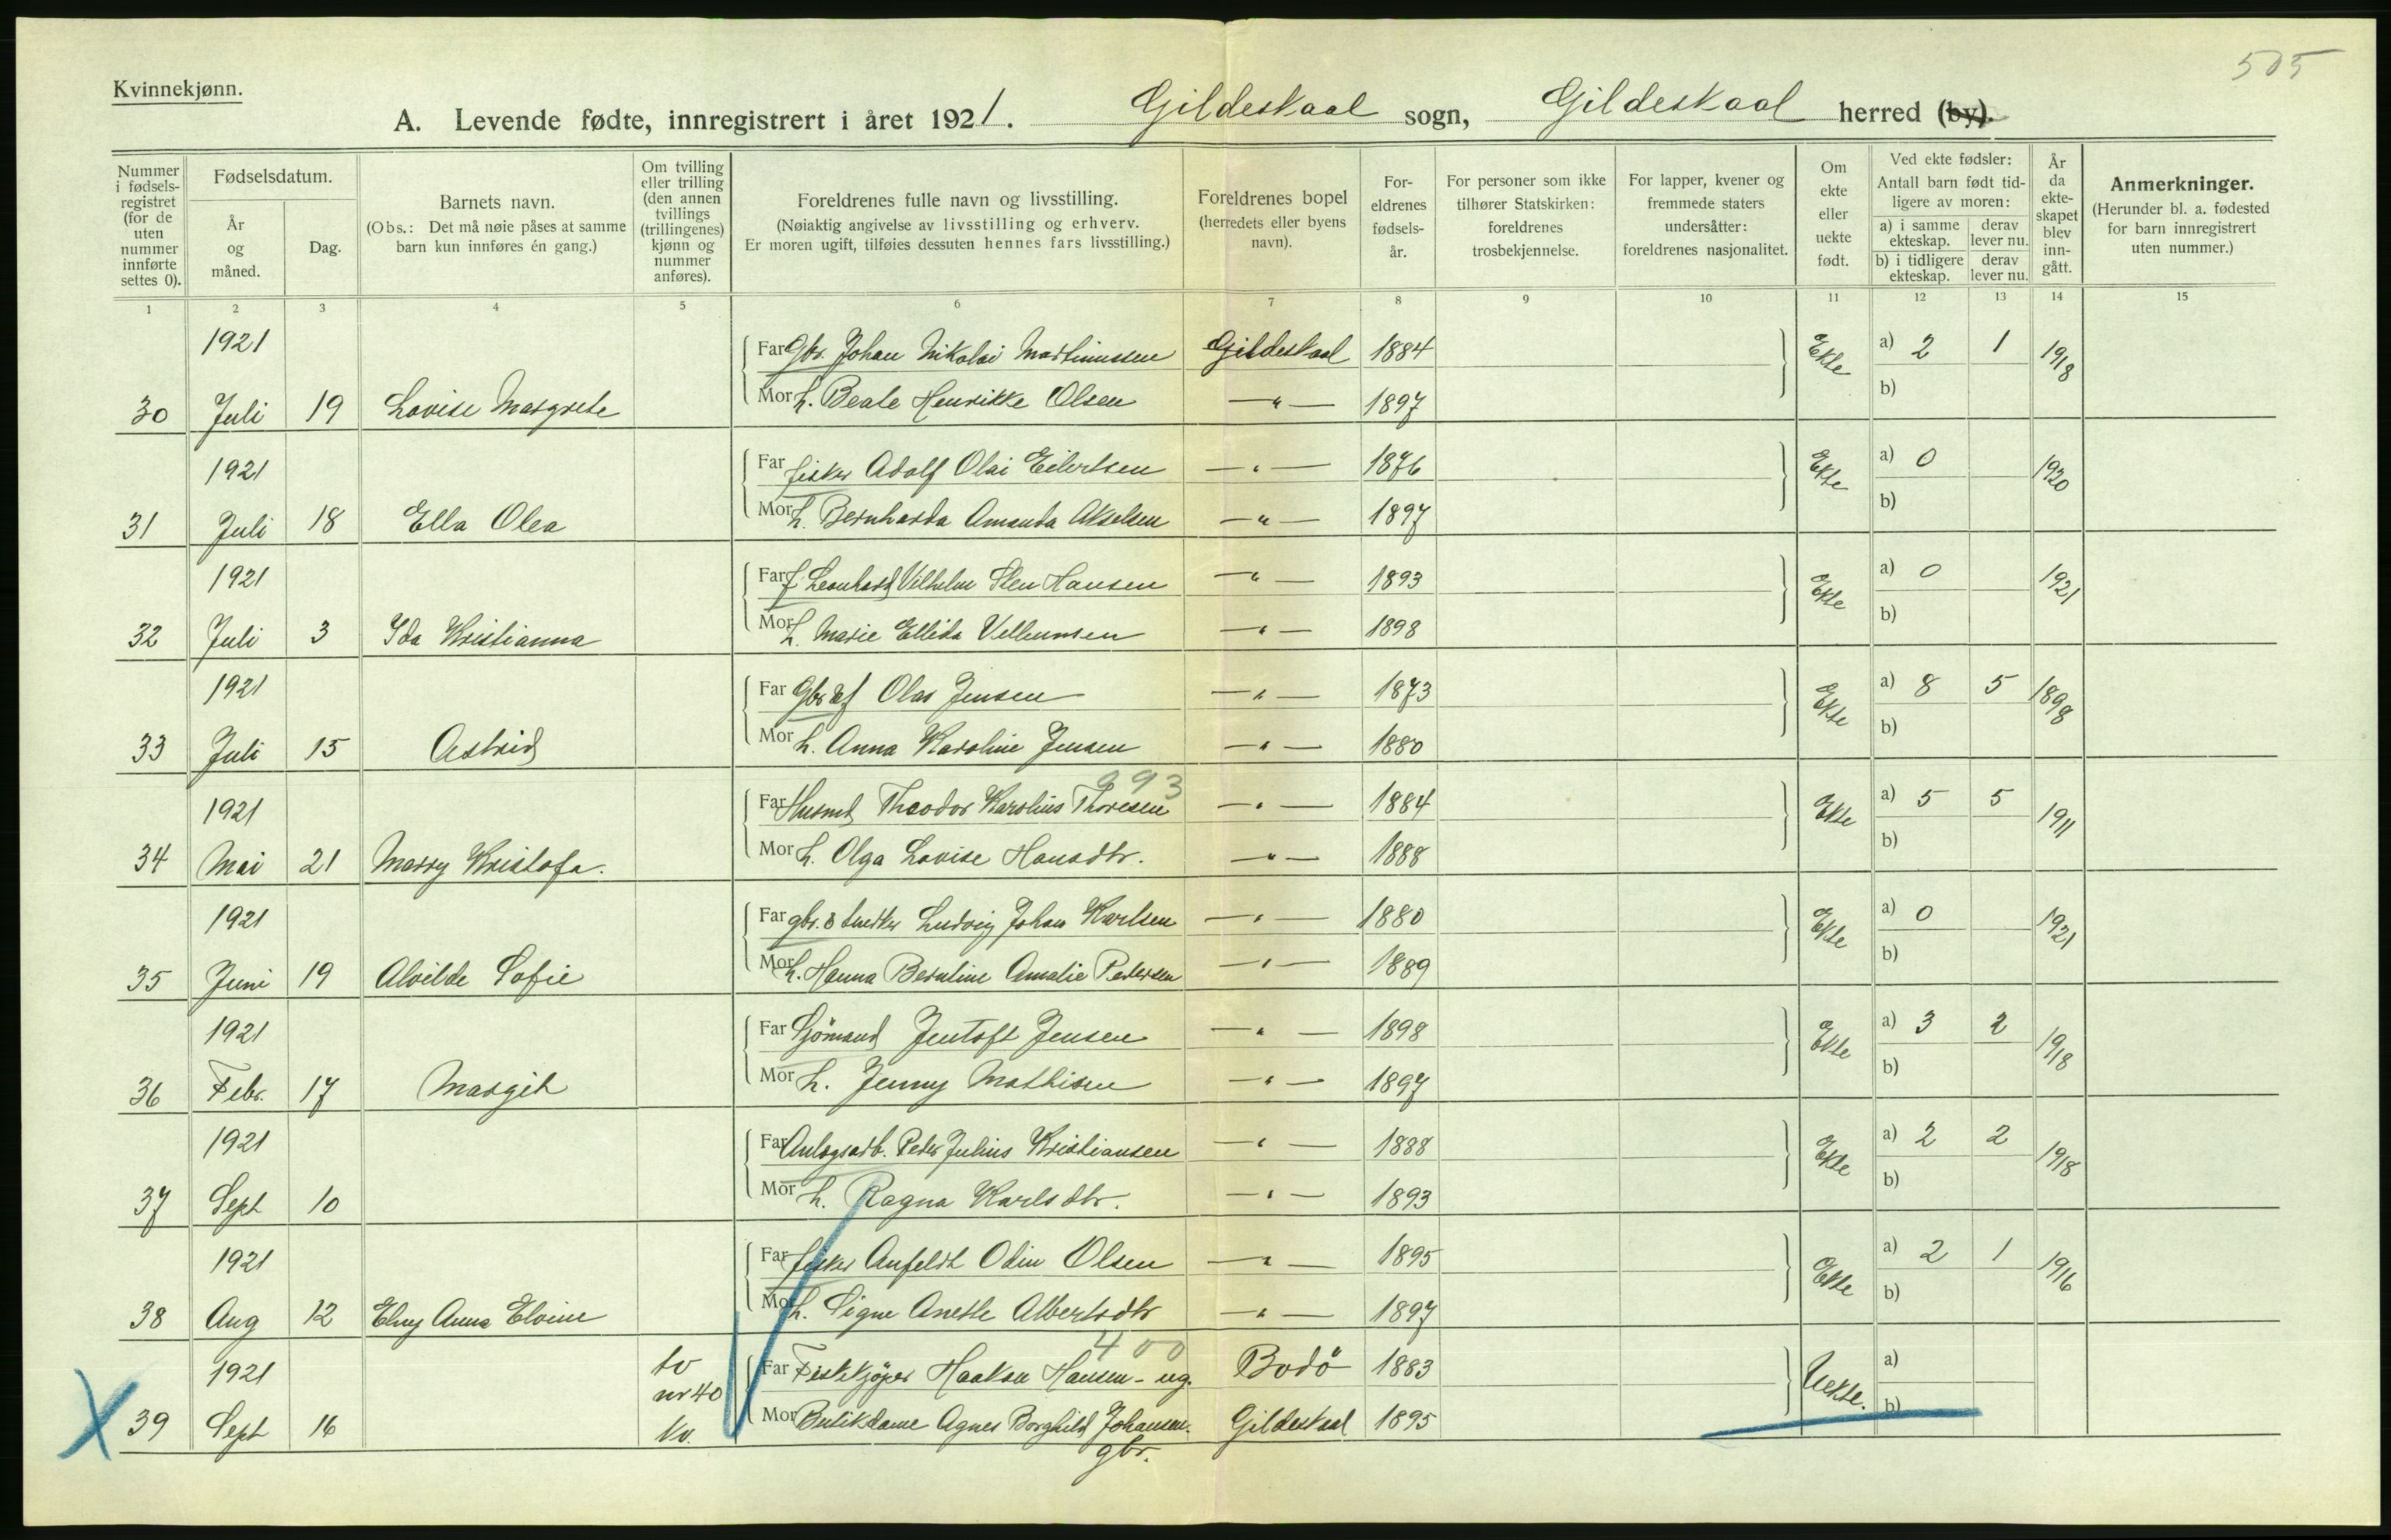 505
Kvinnekjønn.
A. Levende fødte, innregistrert i året 1921. Gildeskaal sogn, Gildeskaal herred (by).
Nummer i fødsels-registret (for de uten nummer innførte settes 0).
Fødselsdatum.
År og måned.
Dag.
Barnets navn.
(Obs.: Det må nøie påses at samme barn kun innføres én gang.)
Om tvilling eller trilling (den annen tvillings (trillingenes) kjønn og nummer anføres).
Foreldrenes fulle navn og livsstilling.
(Nøiaktig angivelse av livsstilling og erhverv.
Er moren ugift, tilføies dessuten hennes fars livsstilling.)
Foreldrenes bopel (herredets eller byens navn).
For-eldrenes fødsels-år.
For personer som ikke tilhører Statskirken: foreldrenes trosbekjennelse.
For lapper, kvener og fremmede staters undersåtter: foreldrenes nasjonalitet.
Om ekte eller uekte født.
Ved ekte fødsler: Antall barn født tid-ligere av moren:
a) i samme ekteskap. derav lever nu.
b) i tidligere ekteskap. derav lever nu.
År da ekte-skapet blev inn-gått.
Anmerkninger.
(Herunder bl. a. fødested for barn innregistrert uten nummer.)
1 2 3 4 5 6 7 8 9 10 11 12 13 14 15
1921 Far Gbr. Johan Nikolai Martinussen Gildeskaal 1884 Ekte a) 2 1 1918
30 Juli 19 Lovise Margrete Mor h. Beate Henrikke Olsen —"— 1897 b)
1921 Far fisker Adolf Olai Eilertsen —"— 1876 Ekte a) 0 1920
31 Juli 18 Ella Olea Mor h. Bernharda Amanda Akselsen —"— 1897 b)
1921 Far f Leonhard Vilhelm Sten Hansen —"— 1893 Ekte a) 0 1921
32 Juli 3 Ida Kristianna Mor h. Marie Ellida Velhumsen —"— 1898 b)
1921 Far Gbr & f Olas Jensen —"— 1873 Ekte a) 8 5 1898
33 Juli 15 Astrid Mor h. Anna Karoline Jensen —"— 1880 b)
993
1921 Far Husmd Theodor Karolius Thoresen —"— 1884 Ekte a) 5 5 1911
34 Mai 21 Marry Kristofa. Mor h. Olga Lovise Hansdtr. —"— 1888 b)
1921 Far gbr. & snedker Ludvig Johan Karlsen —"— 1880 Ekte a) 0 1921
35 Juni 19 Alvilde Sofie Mor h. Hanna Berntine Amalie Pedersen —"— 1889 b)
1921 Far Sjömand Jentoft Jensen —"— 1898 Ekte a) 3 2 1918
36 Febr. 17 Margit Mor h. Jenny Mathisen —"— 1897 b)
1921 Far Anlegsarb. Peder Julius Kristiansen —"— 1888 Ekte a) 2 2 1918
37 Sept 10 Mor h. Ragna Karlsdtr. —"— 1893 b)
1921 Far fisker Anfeldt Odin Olsen —"— 1895 Ekte a) 2 1 1916
38 Aug 12 Elny Anna Elvine Mor h. Signe Anette Albertsdtr —"— 1897 b)
400
1921 tv nr 40 Far Fiskekjöper Haakon Hansen - ug. Bodö 1883 Uekte. a)
39 Sept 16 kv. Mor Butikdame Agnes Borghild Johansen. Gildeskaal 1895 b)
gbr.